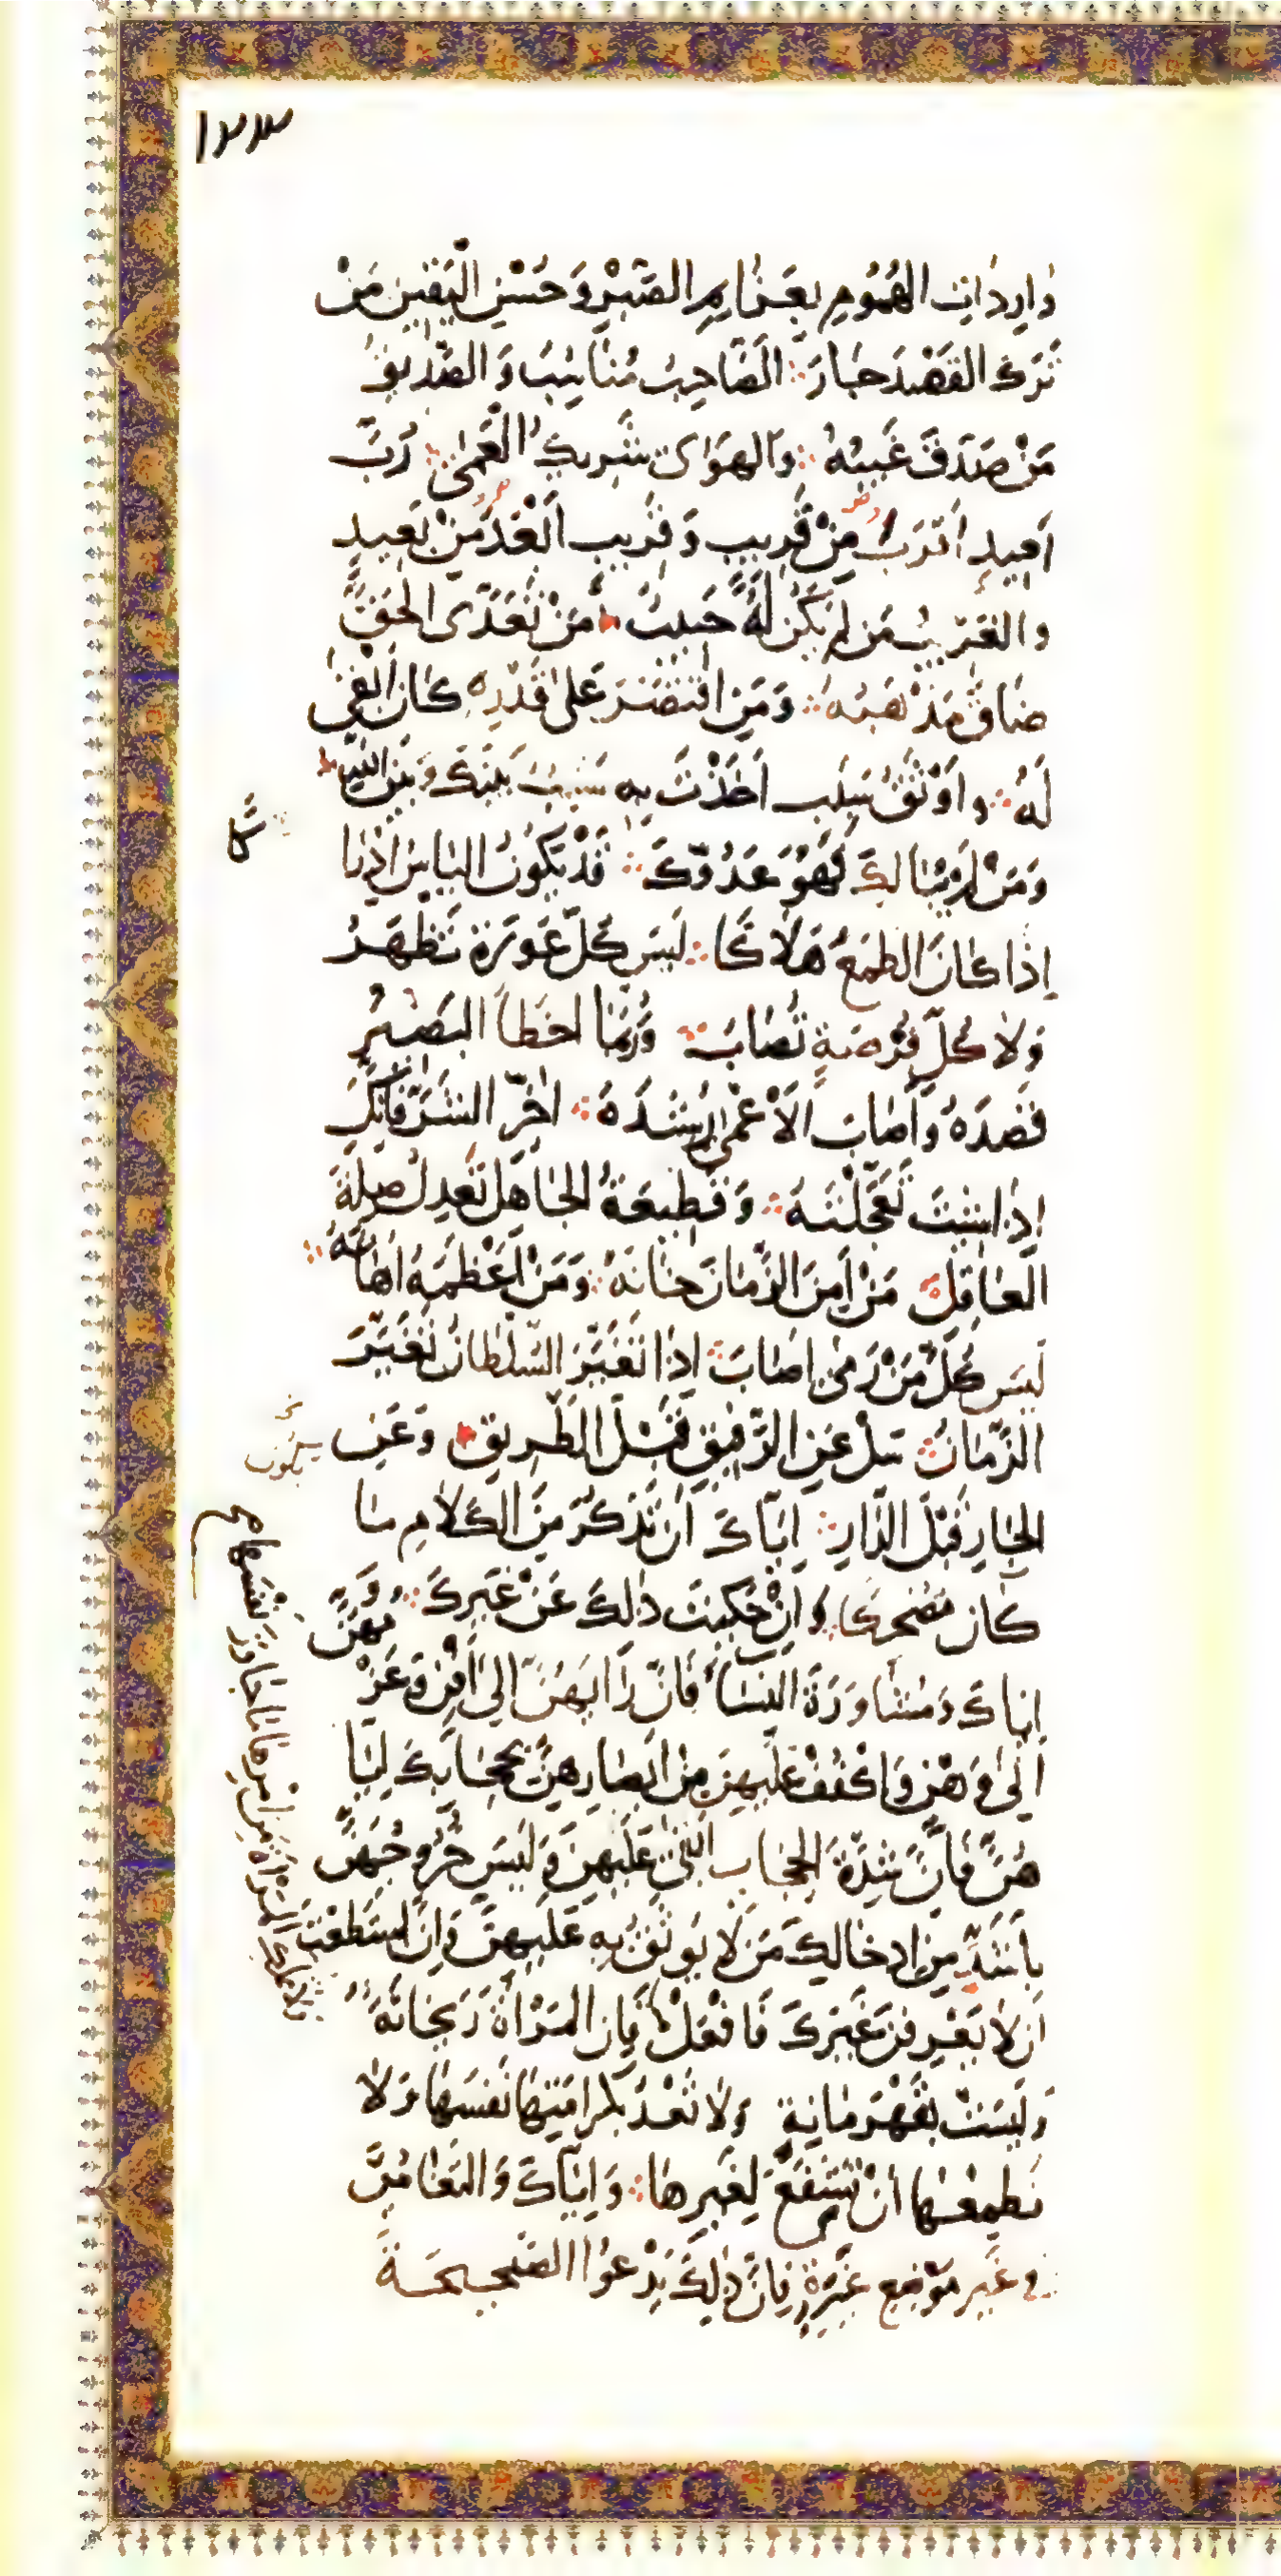 ١٢٣
وارِداتِ الهُمُومِ بِعَزائِمِ الصَّبْرِ وَحُسْنِ الْيَقينِ مَنْ
تَرَكَ القَصْدَ جارَ ؞ الصَّاحِبُ مُناسِبٌ وَ الصَّديقُ
مَنْ صَدَقَ غَيْبُهُ ؞ وَالهَوَى شَريكُ الْعَمى ؞ رُبَّ
بَعيدٍ أقرَبُ مِنْ قَريبٍ وَقَريبٍ أبْعَدُ مِنْ بَعيدٍ
وَالغَريبُ مَن لَمْ يَكُنْ لَهُ حَبيبٌ ؞ مَنْ تَعَدَّى الحَقَّ
ضاقَ مَذْهَبُهُ ؞ وَمَنِ اقْتَصَرَ عَلى قَدْرِهِ كانَ أبْقى
لَهُ ؞ وَأَوْثَقُ سَبَبٍ أخَذْتَ بِهِ سَبَبٌ بَيْنَكَ وَبَيْنَ اللهِ
وَمَنْ لَمْ يُبالِكَ فَهُوَ عَدُوُّكَ ؞ قَدْ يَكُونُ اليَاسُ ادْراكًا
إذا كانَ الطَّمَعُ هَلاكًا ؞ لَيْسَ كُلُّ عَوْرَةٍ تَظْهَرُ
وَلا كُلُّ فُرْصَةٍ تُصابُ ؞ وَرُبَّما اخطَأَ البَصيرُ
قَصْدَهُ وَأصابَ الأعْمى رُشْدَهُ ؞ اخِّرِ الشَّرَّ فَاِنَّكَ
اِذا شِئْتَ تَعَجَّلْتَهُ ؞ وَقَطيعَةُ الجاهِلِ تَعْدِلُ صِلَةَ
العاقِلِ ؞ مَنْ أَمِنَ الزَّمانَ خانَهُ ؞ وَمَنْ أعْظَمَهُ اهانَهُ ؞
لَيْسَ كُلُّ مَنْ رَمى اصابَ ؞ اِذا تَغَيَّرَ السُّلْطانُ تَغَيَّرَ
الزَّمانُ ؞ سَلْ عَنِ الرَّفيقِ قَبْلَ الطَّريقِ ؞ وَعَنِ
الجارِ قَبْلَ الدَّارِ ؞ اِيَّاكَ اَنْ تَذْكُرَ مِنَ الكَلامِ ما
يكون
كانَ مُضْحِكًا وَاِنْ حَكَيْتَ ذلِكَ عَنْ غَيْرِكَ ؞ وَ
اِيَّاكَ وَمُشاوَرَةَ النِّساءِ فَاِنَّ رَأيَهُنَّ اِلى أَفْنٍ وَعَزْمَهُنَّ
اِلى وَهْنٍ وَاكْفُفْ عَلَيْهِنَّ مِنْ اَبْصارِهِنَّ بِحِجابِكَ اِيَّا
هُنَّ فَاِنَّ شِدَّةَ الحِجابِ اَبْقى عَلَيْهِنَّ وَلَيْسَ خُرُوجُهُنَّ
بِأَشَدَّ مِنْ اِدخالِكَ مَنْ لا يُوثَقُ بِه عَلَيْهِنَّ وَاِنِ اسْتَطَعْتَ
اَنْ لا يَعْرِفْنَ غَيْرَكَ فَافْعَلْ فَاِنَّ المَرْأةَ رَيْحانَةٌ
ولا تملك المَرْأةَ مِنْ اَمْرِها ما جاوَزَ نَفْسَها
وَلَيْسَتْ بِقَهْرَمانَةٍ وَلا تَعْدُ بِكَرامَتِها نَفْسَها وَلا
تُطْمِعْها اَنْ تَشْفَعَ لِغَيْرِها ؞ وَاِيَّاكَ وَالتَّغايُرَ
في غَيْرِ مَوْضِعِ غَيْرَةٍ فَاِنَّ ذلِكَ يَدْعُوا الصَّحيحَةَ